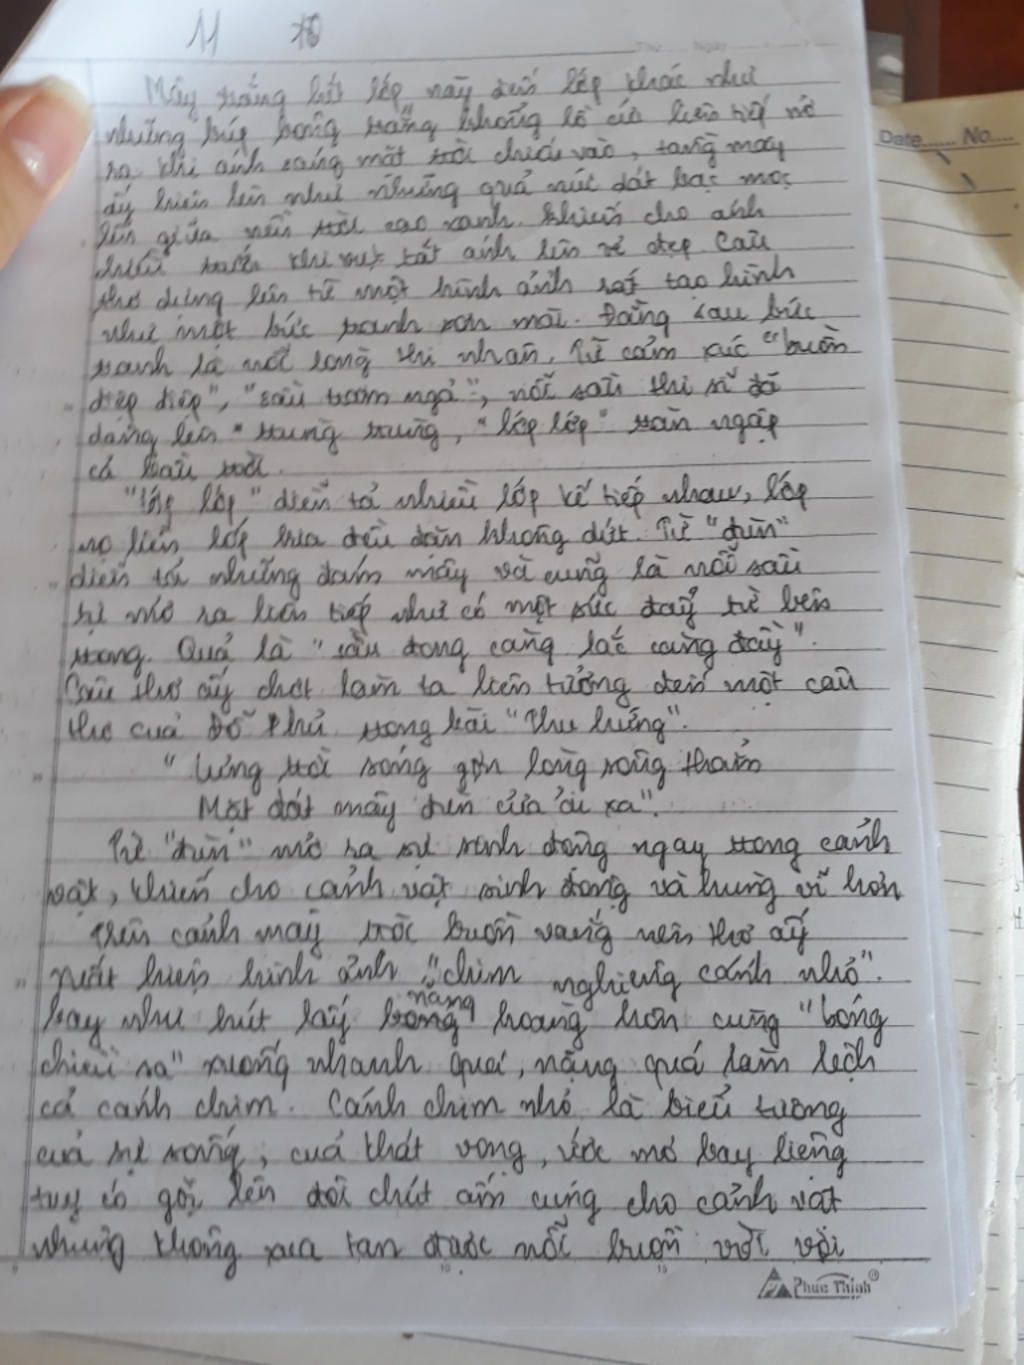 11
Thứ Ngày
Date No
Mây trắng hết lớp này đến lớp khác như
những búp bông trắng khổng lồ cứ liên tiếp nở
ra khi ánh sáng mặt trời chiếu vào, tầng mây
ấy hiện lên như những quả núi dát bạc mọc
lên giữa nền trời cao xanh. Khiến cho ánh
chiều trước khi vụt tắt ánh lên vẻ đẹp. Câu
thơ dựng lên từ một hình ảnh rất tạo hình
như một bức tranh sơn mài. Đằng sau bức
tranh là nỗi lòng thi nhân. Từ cảm xúc "buồn
điệp điệp", "sầu trăm ngả", nỗi sầu thi sĩ đã
dâng lên "trùng trùng, "lớp lớp" tràn ngập
cả bầu trời.
"lớp lớp" diễn tả nhiều lớp kế tiếp nhau, lớp
nọ liền lớp kia đều đặn không dứt. Từ "đùn"
diễn tả những đám mây và cũng là nỗi sầu
tự mở ra liên tiếp như có một sức đẩy từ bên
trong. Quả là "sầu đong càng lắc càng đầy".
Câu thơ ấy chợt làm ta liên tưởng đến một câu
thơ của Đỗ Phủ trong bài "Thu hứng".
"Lưng trời sóng gợn lòng sông thẳm
Mặt đất mây đùn cửa ải xa".
Từ "đùn" mở ra sự sinh động ngay trong cảnh
vật, khiến cho cảnh vật sinh động và hùng vĩ hơn
Trên cảnh mây trời buồn vắng nên thơ ấy
xuất hiện hình ảnh "chim nghiêng cánh nhỏ".
bay như hút lấy bóng nàng hoàng hôn cùng "bóng
chiều sa" xuống nhanh quá, nặng quá làm lệch
cả cánh chim. Cánh chim nhỏ là biểu tượng
của sự sống, của khát vọng, ước mơ bay liệng
tuy có gợi lên đôi chút ấm cúng cho cảnh vật
nhưng không xua tan được nỗi buồn vời vợi
Phuc Thinh